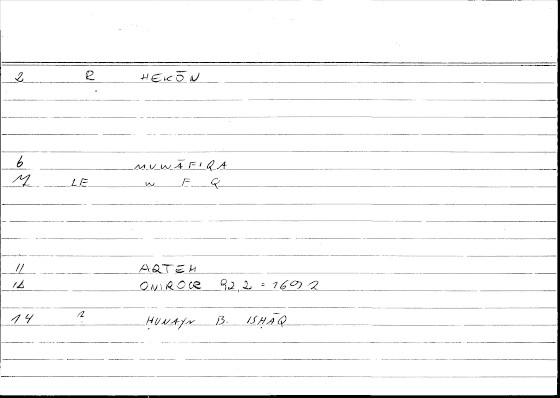 2 R HEKŌN
6 MUWĀFIQA
LE W F Q
11 ARTEM
12 ONIROCR 92,2 = 169,2
14 2 ḤUNAYN B. ISḤĀQ